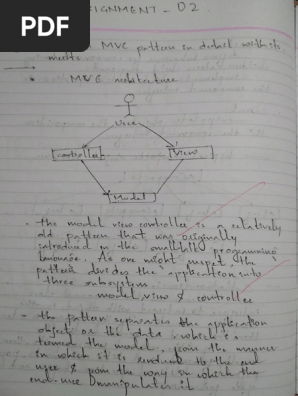 PDF
SIGNMENT - 02.
MVC pattern in detail with its
merits
MVC architecture
User
controller
View
Model
- the model view controller is a relatively
old pattern that was originally
introduced in the smalltalk programming
language. As one might suspect the
pattern divides the application into
three subsystem
model view & controller
- the pattern separates the application
object or the data, which is
termed the model, from the manner
in which it is rendered to the end
user & from the way in which the
end-user manipulates it